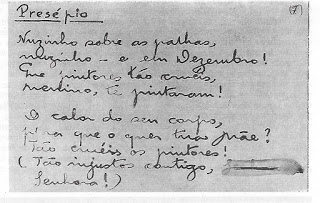 Presépio
(7)
Nuzinho sobre as palhas,
nuzinho - e em Dezembro!
Que pintores tão cruéis,
menino, te pintaram!
O calor do seu corpo,
p'ra que o quer tua Mãe?
Tão cruéis os pintores!
(Tão injustos contigo,
Senhora!)